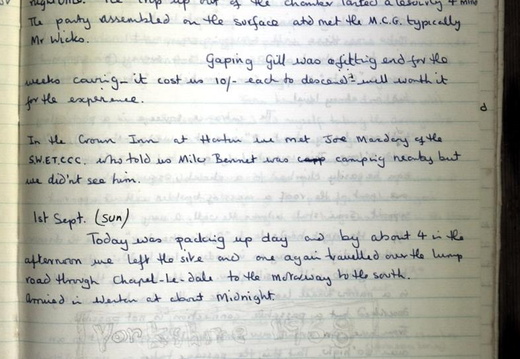 trip up out of the chamber lasted a
The party assembled on the surface and met the M.C.G. typically
Mr Wicks.
Gaping Gill was a fitting end for the
weeks caving - it cost us 10/- each to descend - well worth it
for the experience.
In the Crown Inn at Horton we met Joe Manday of the
S.W.E.T.C.C.C. who told us Mike Bennet was camping nearby but
we didn't see him.
1st Sept. (SUN)
Today was packing up day and by about 4 in the
afternoon we left the site and one again travelled over the lump
road through Chapel-le-dale to the motorway to the south.
Arrived in Weston at about Midnight.